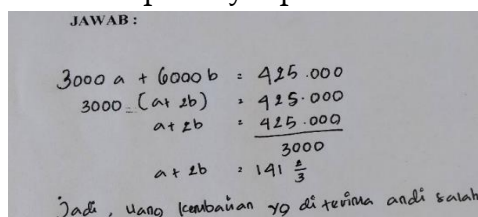 JAWAB :
3000 a + 6000 b = 425.000
3000 (a+ 2b) = 425.000
a+ 2b = 425.000
3000
a + 2b = 141 2/3
Jadi, uang kembalian yg di terima andi salah